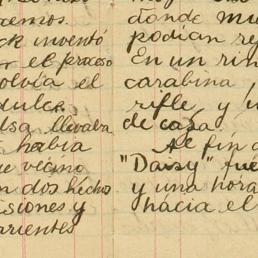 cemos.
ck inventó
r el proceso
olvía el
dulce.
lsa llevaba
había
ue vecino
n dos hechos
isiones y
arientes
donde mu
podían re
En un rin
carabina
rifle y u
de caza.
Al fin d
"Daisy" fue
y una hora
hacia el